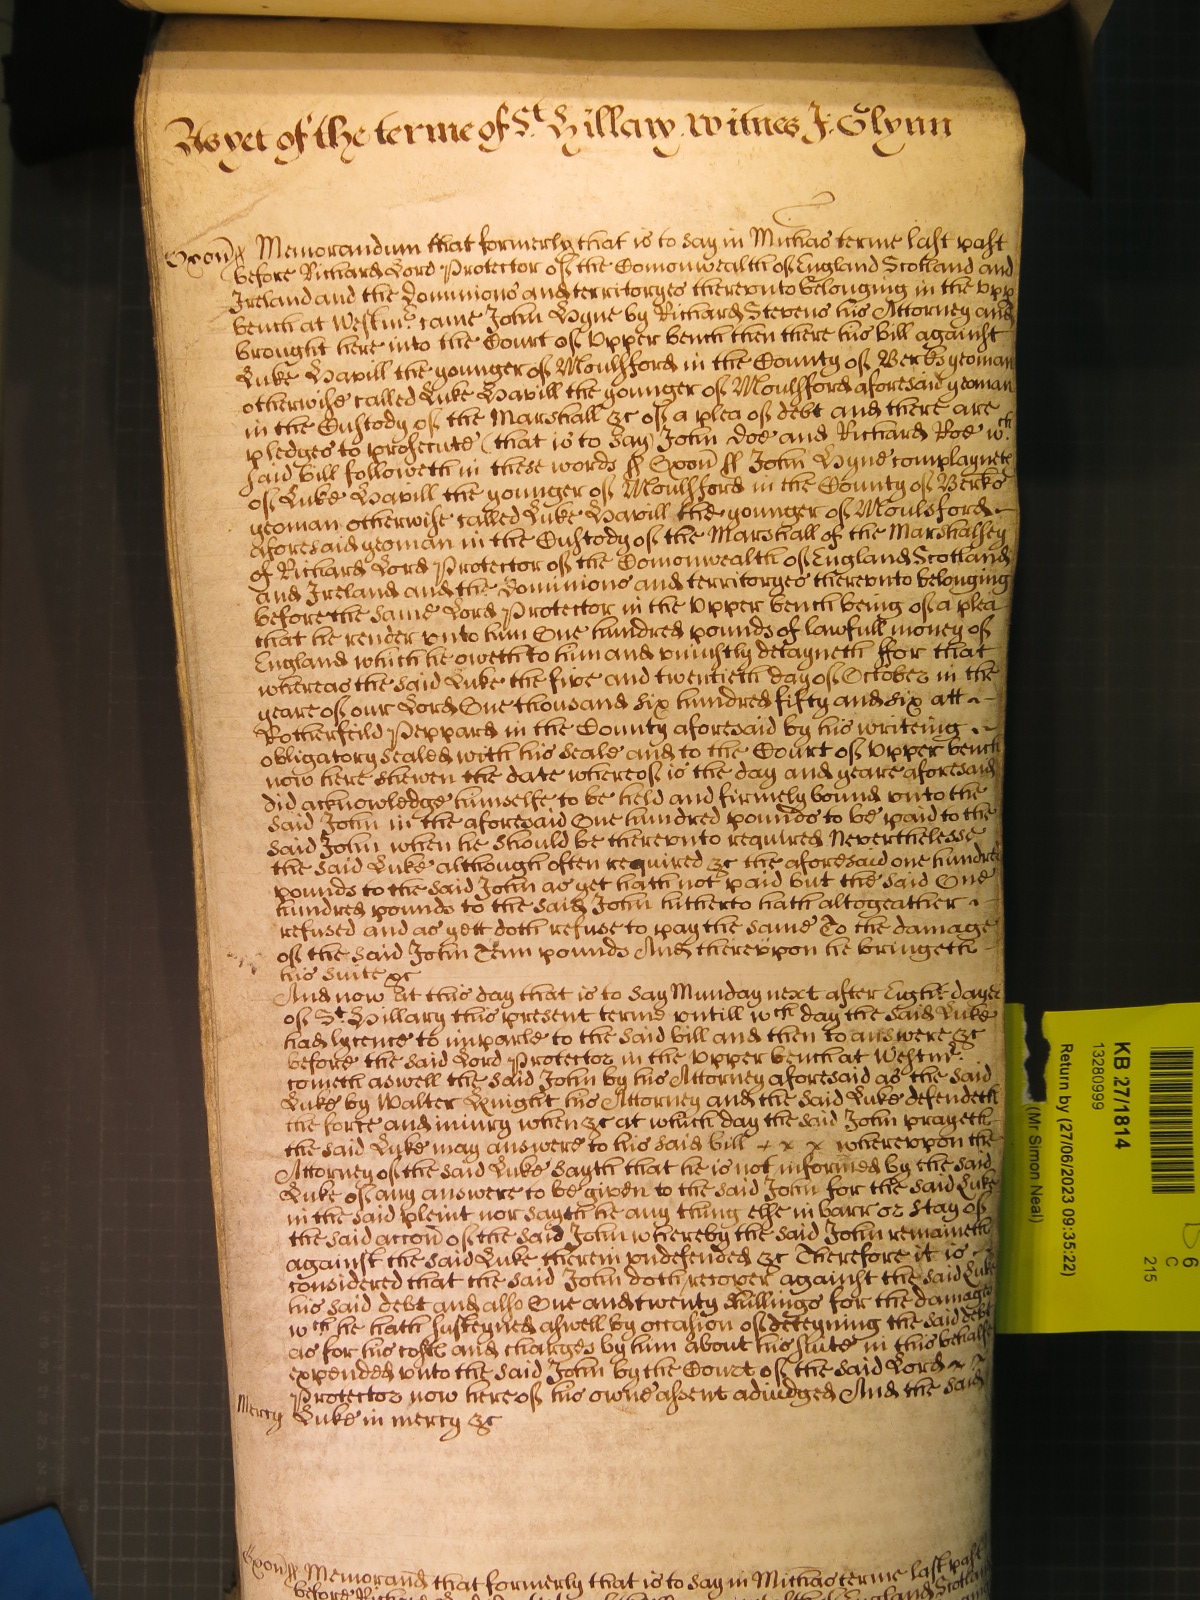 As yet of the terme of St Hillary witnes J: Glynn
Oxon ss Memorandum that formerly that is to say in Michas terme last past
before Richard Lord Protector of the Comonwealth of England Scotland and
Ireland and the Dominions and territoryes therevnto belonging in the vpp
bench at Westmr. came John Hyne by Richard Stevens his Attorney and
brought here into the Court of Vpper bench then there his bill against
Luke Havill the younger of Moulsford in the County of Berks yeoman
otherwise called Luke Havill the younger of Moulsford aforesaid yeoman
in the Custody of the Marshall &c of a plea of debt and there are
pledges to prosecute (that is to say) John Doe and Richard Roe wch
said bill followeth in these words ss Oxon ss John Hyne complayneth
of Luke Havill the younger of Moulsford in the County of Berks
yeoman otherwise called Luke Havill the younger of Moulsford
aforesaid yeoman in the Custody of the Marshall of the Marshalsey
of Richard Lord Protector of the Comonwealth of England Scotland
and Ireland and the Dominions and territoryes therevnto belonging
before the same Lord Protector in the Vpper bench being of a plea
that he render vnto him One hundred pounds of lawfull money of
England which he oweth to him and vniustly detayneth ffor that
whereas the said Luke the five and twentieth day of October in the
yeare of our Lord One thousand six hundred fifty and six att
Rotherfeild Peppard in the County aforesaid by his writeing
obligatory sealed with his seale and to the Court of Vpper bench
now here shewen the date whereof is the day and yeare aforesaid
did acknowledge himselfe to be held and firmely bound vnto the
said John in the aforesaid One hundred pounds to be paid to the
said John when he should be therevnto required Neverthelesse
the said Luke although often required &c the aforesaid one hundred
pounds to the said John as yet hath not paid but the said One
hundred pounds to the said John hitherto hath altogeather
refused and as yett doth refuse to pay the same To the damage
of the said John Tenn pounds And therevpon he bringeth
his suite &c
And now at this day that is to say Munday next after Eight dayes
of St Hillary this present terme vntill wch day the said Luke
had lycence to imparle to the said bill and then to answere &c
before the said Lord Protector in the Vpper bench at Westmr.
cometh aswell the said John by his Attorney aforesaid as the said
Luke by Walter Knight his Attorney and the said Luke defendeth
the force and iniury when &c at which day the said John prayeth
the said Luke may answere to his said bill x x x wherevpon the
Attorney of the said Luke sayth that he is not informed by the said
Luke of any answere to be given to the said John for the said Luke
in the said pleint nor sayth he any thing else in barr or stay of
the said accon of the said John whereby the said John remaineth
against the said Luke therein vndefended &c Therefore it is
considered that the said John doth recover against the said Luke
his said debt and also One and twenty shillings for the damages
wch he hath susteyned aswell by occasion of deteyning the said debt
as for his costs and charges by him about his suite in this behalfe
expended vnto the said John by the Court of the said Lord
Protector now here of his owne assent adiudged And the said
Mercy Luke in mercy &c
Oxon ss Memorand that formerly that is to say in Michas terme last past
KB 27/1814
13280999
Return by (27/06/2023 09:35:22)
(Mr Simon Neal)
215
C
6
D